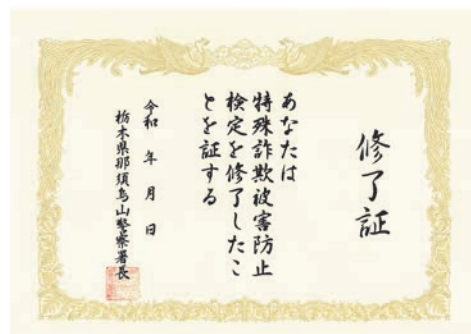 修了証
あなたは
特殊詐欺被害防止
検定を修了したこ
とを証する
令和 年 月 日
栃木県那須烏山警察署長